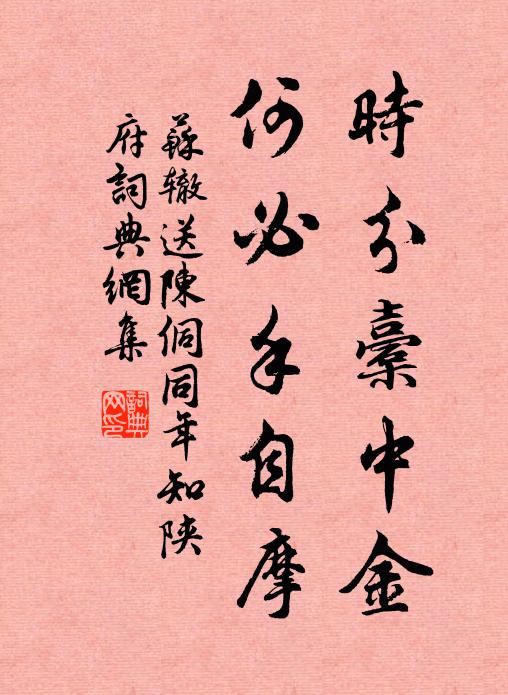 時分橐中金
何必手自摩
蘇轍送陳侗同年知陝
府詞典網集
詞典网印